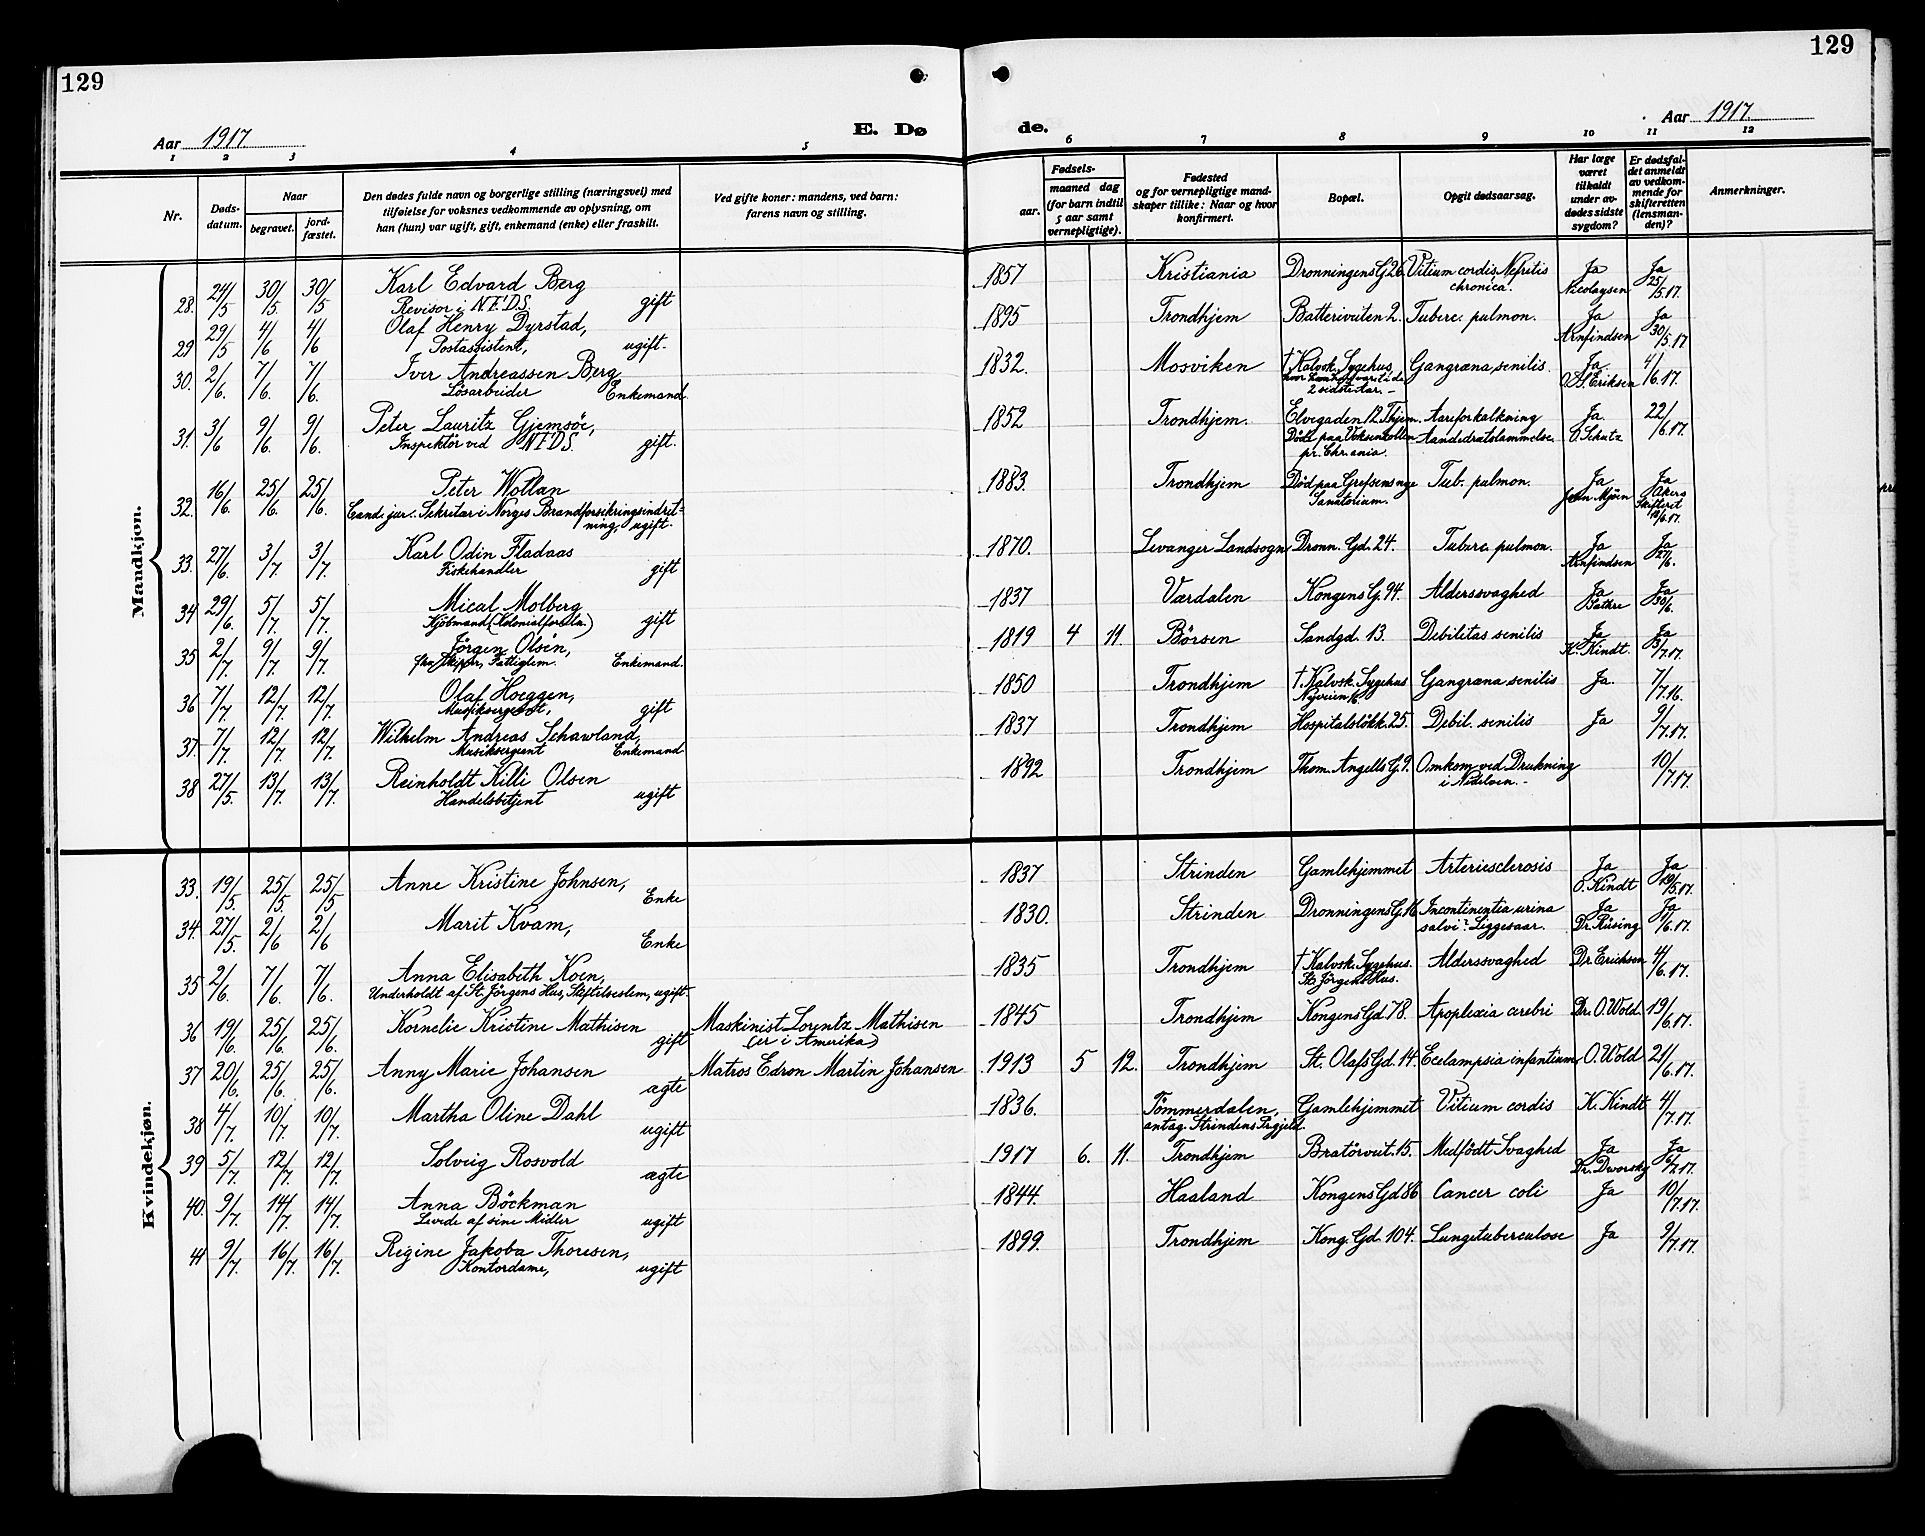 129
129
Aar 1917
E. Dø
de.
Aar 1917
1 2 3 4 5 6 7 8 9 10 11 12
Nr.
Døds-
datum.
Naar
begravet.
jord-
fæstet.
Den dødes fulde navn og borgerlige stilling (næringsvei) med
tilføielse for voksnes vedkommende av oplysning, om
han (hun) var ugift, gift, enkemand (enke) eller fraskilt.
Ved gifte koner: mandens, ved barn:
farens navn og stilling.
Fødsels-
aar.
maaned dag
(for barn indtil
5 aar samt
vernepligtige).
Fødested
og for vernepligtige mand-
skaper tillike: Naar og hvor
konfirmert.
Bopæl.
Opgit dødsaarsag.
Har læge
været
tilkaldt
under av-
dødes sidste
sygdom?
Er dødsfal-
det anmeldt
av vedkom-
mende for
skifteretten
(lensman-
den)?
Anmerkninger.
Mandkjøn.
28. 24/5 30/5. 30/5 Karl Edvard Berg 1857 Kristiania Dronningens G 26. Vitium cordis, Nefritis Ja Ja
Revisor i N.F.D.S. gift chronica. Nicolaysen 25/5.17.
29 29/5 4/6 4/6 Olaf Henry Dyrstad, 1895 Trondhjem. Batteriveiten 2. Tuberc. pulmon. Ja Ja
Postassistent, ugift. Arnfindsen 30/5.17
30. 2/6. 7/6. 7/6. Iver Andreassen Berg 1832. Mosviken † Kalvsk. Sygehus, Gangræna senilis. Ja 4/6.17.
Løsarbeider Enkemand. 2 sidste Aar. - O.S. Eriksen
31. 3/6 9/6. 9/6. Peter Lauritz Gjemsöe, 1852 Trondhjem. Elvegaden 12. Thjem. Aareforkalkning Ja 22/6.17.
Inspektör ved N.F.D.S. gift. Död paa Voksenkollen Aandedrætslammelse. O. Schutz
pr. Chr.ania.
32. 16/6. 25/6. 25/6. Peter Wollan 1883. Trondhjem Död paa Grefsens nye Tub. pulmon. Ja Ja
Cand. jur. Sekretær i Norges Brandforsikringsindret- Sanatorium. Mjöen Akers
ning, ugift. Skifteret 18/6.17.
33. 27/6. 3/7. 3/7. Karl Odin Fladaas 1870. Levanger Landsogn Dronn. Gd. 24. Tuberc. pulmon. Ja Ja
Fiskehandler gift Arnfindsen 27/6.
34 29/6. 5/7. 5/7. Mical Molberg 1837 Værdalen Kongens G. 94. Alderssvaghed Ja Ja
Kjöbmand (Kolonialforr.) gift Sathre 30/6.
35 2/7. 9/7. 9/7. Jörgen Olsén, 1819 4 11. Börsen Sandgd. 13. Debilitas senilis Ja Ja
fhv. Skipper, Fattiglem. Enkemand. K. Kindt. 3/7.17.
36 7/7. 12/7. 12/7. Olaf Hoeggen, 1850 Trondhjem †. Kalvsk. Sygehus Gangræna senilis Ja. 7/7.16.
Musiksergeant, gift Nyveien 6.
37. 7/7. 12/7. 12/7. Wilhelm Andreas Schawland, 1837 Trondhjem Hospitalslökk. 25. Debil. senilis Ja 9/7.17.
Musiksergeant Enkemand
38 27/5. 13/7. 13/7. Reinholdt Killi Olsen 1892 Trondhjem Thom. Angells G. 9. Omkom ved Drukning 10/7.17.
Handelsbetjent ugift i Nidelven. -
Kvindekjøn.
33. 19/5. 25/5 25/5 Anne Kristine Johnsen, 1837 Strinden Gamlehjemmet Arteriesclerosis Ja Ja
Enke O. Kindt 19/5.17.
34. 27/5. 2/6 2/6 Marit Kvam, 1830. Strinden Dronningens G. 16. Incontinentia urina Ja Ja
Enke salvi? Liggesaar. Dr. Rüsing 1/6.17.
35 2/6. 7/6. 7/6. Anna Elisabeth Koen, 1835 Trondhjem † Kalvsk. Sygehus. Alderssvaghed Dr Erichsen 4/6.17.
Underholdt af St. Jörgens Hus, Stiftelseslem, ugift. St. Jörgens Hus.
36 19/6. 25/6. 25/6. Kornelie Kristine Mathisen Maskinist Lorentz Mathisen 1845 Trondhjem Kongens Gd. 78. Apoplexia cerebri Dr. O. Wold 19/6.17.
gift (er i Amerika)
37 20/6. 25/6. 25/6. Anny Marie Johansen Matros Edron Martin Johansen 1913 5 12. Trondhjem St. Olafs Gd. 14. Ecclampsia infantium O. Wold 21/6.17.
ægte
38 4/7. 10/7. 10/7. Martha Oline Dahl 1836. Tömmerdalen, Gamlehjemmet Vitium cordis K. Kindt 4/7.17.
ugift antag. Strindens Prgjeld.
39 5/7. 12/7. 12/7. Solveig Rosvold 1917 6. 11. Trondhjem Bratörveit. 15. Medfödt Svaghed Ja Ja
ægte Dr. Dvorsky 6/7.17.
40. 9/7. 14/7. 14/7. Anna Böckman 1844. Haaland Kongens Gd 86 Cancer coli Ja 10/7.17.
Levede af sine Midler ugift
41 9/7. 16/7. 16/7. Regine Jakoba Thoresen, 1899. Trondhjem Kong. Gd. 104. Lungetuberculose Ja 9/7.17.
Kontordame, ugift